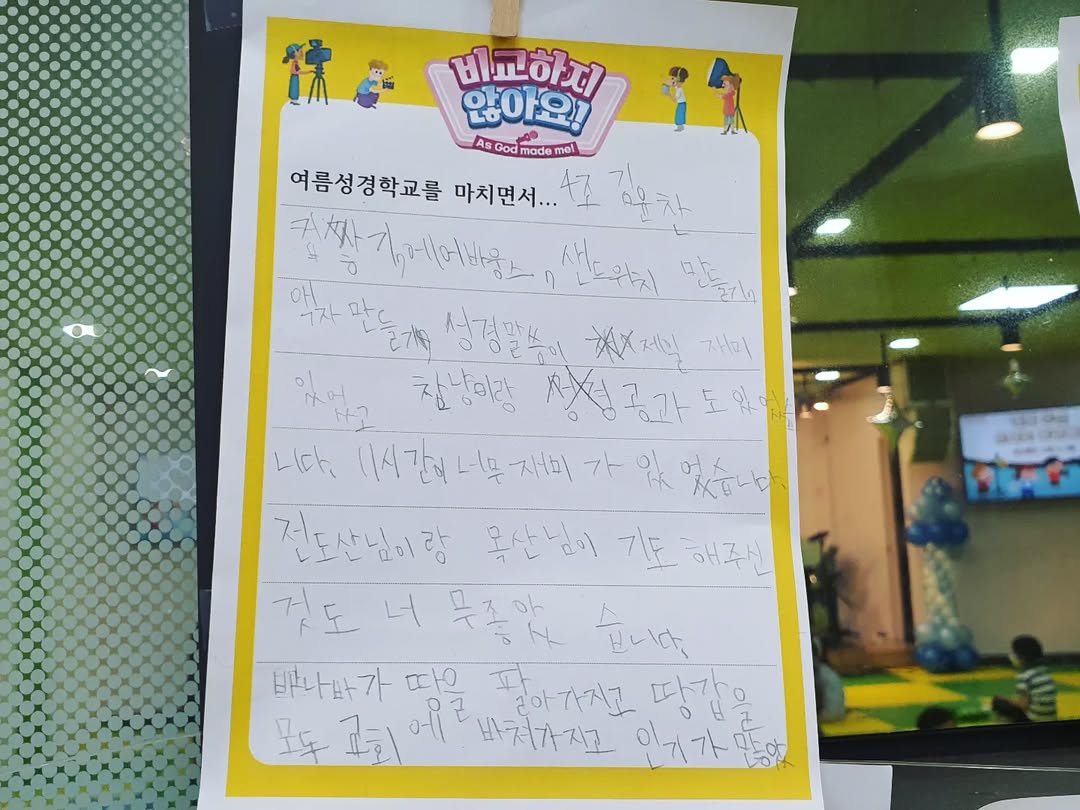 비교하지
않아요!
As God made me!
여름성경학교를 마치면서... 4조 김윤찬
기, 에어바운스, 샌드위치 만들기,
액자 만들기, 성경말씀이 제일 재미
있었고 참냥미랑 공과 도 있었습
니다. 11시간이 너무 재미 가 있 었습니다.
전도산님이랑 목산님이 기도 해주신
것도 너 무좋았 습니다.
바나바가 땅을 팔아가지고 땅값을
모두 교회 에 바쳐가지고 인기가 많았